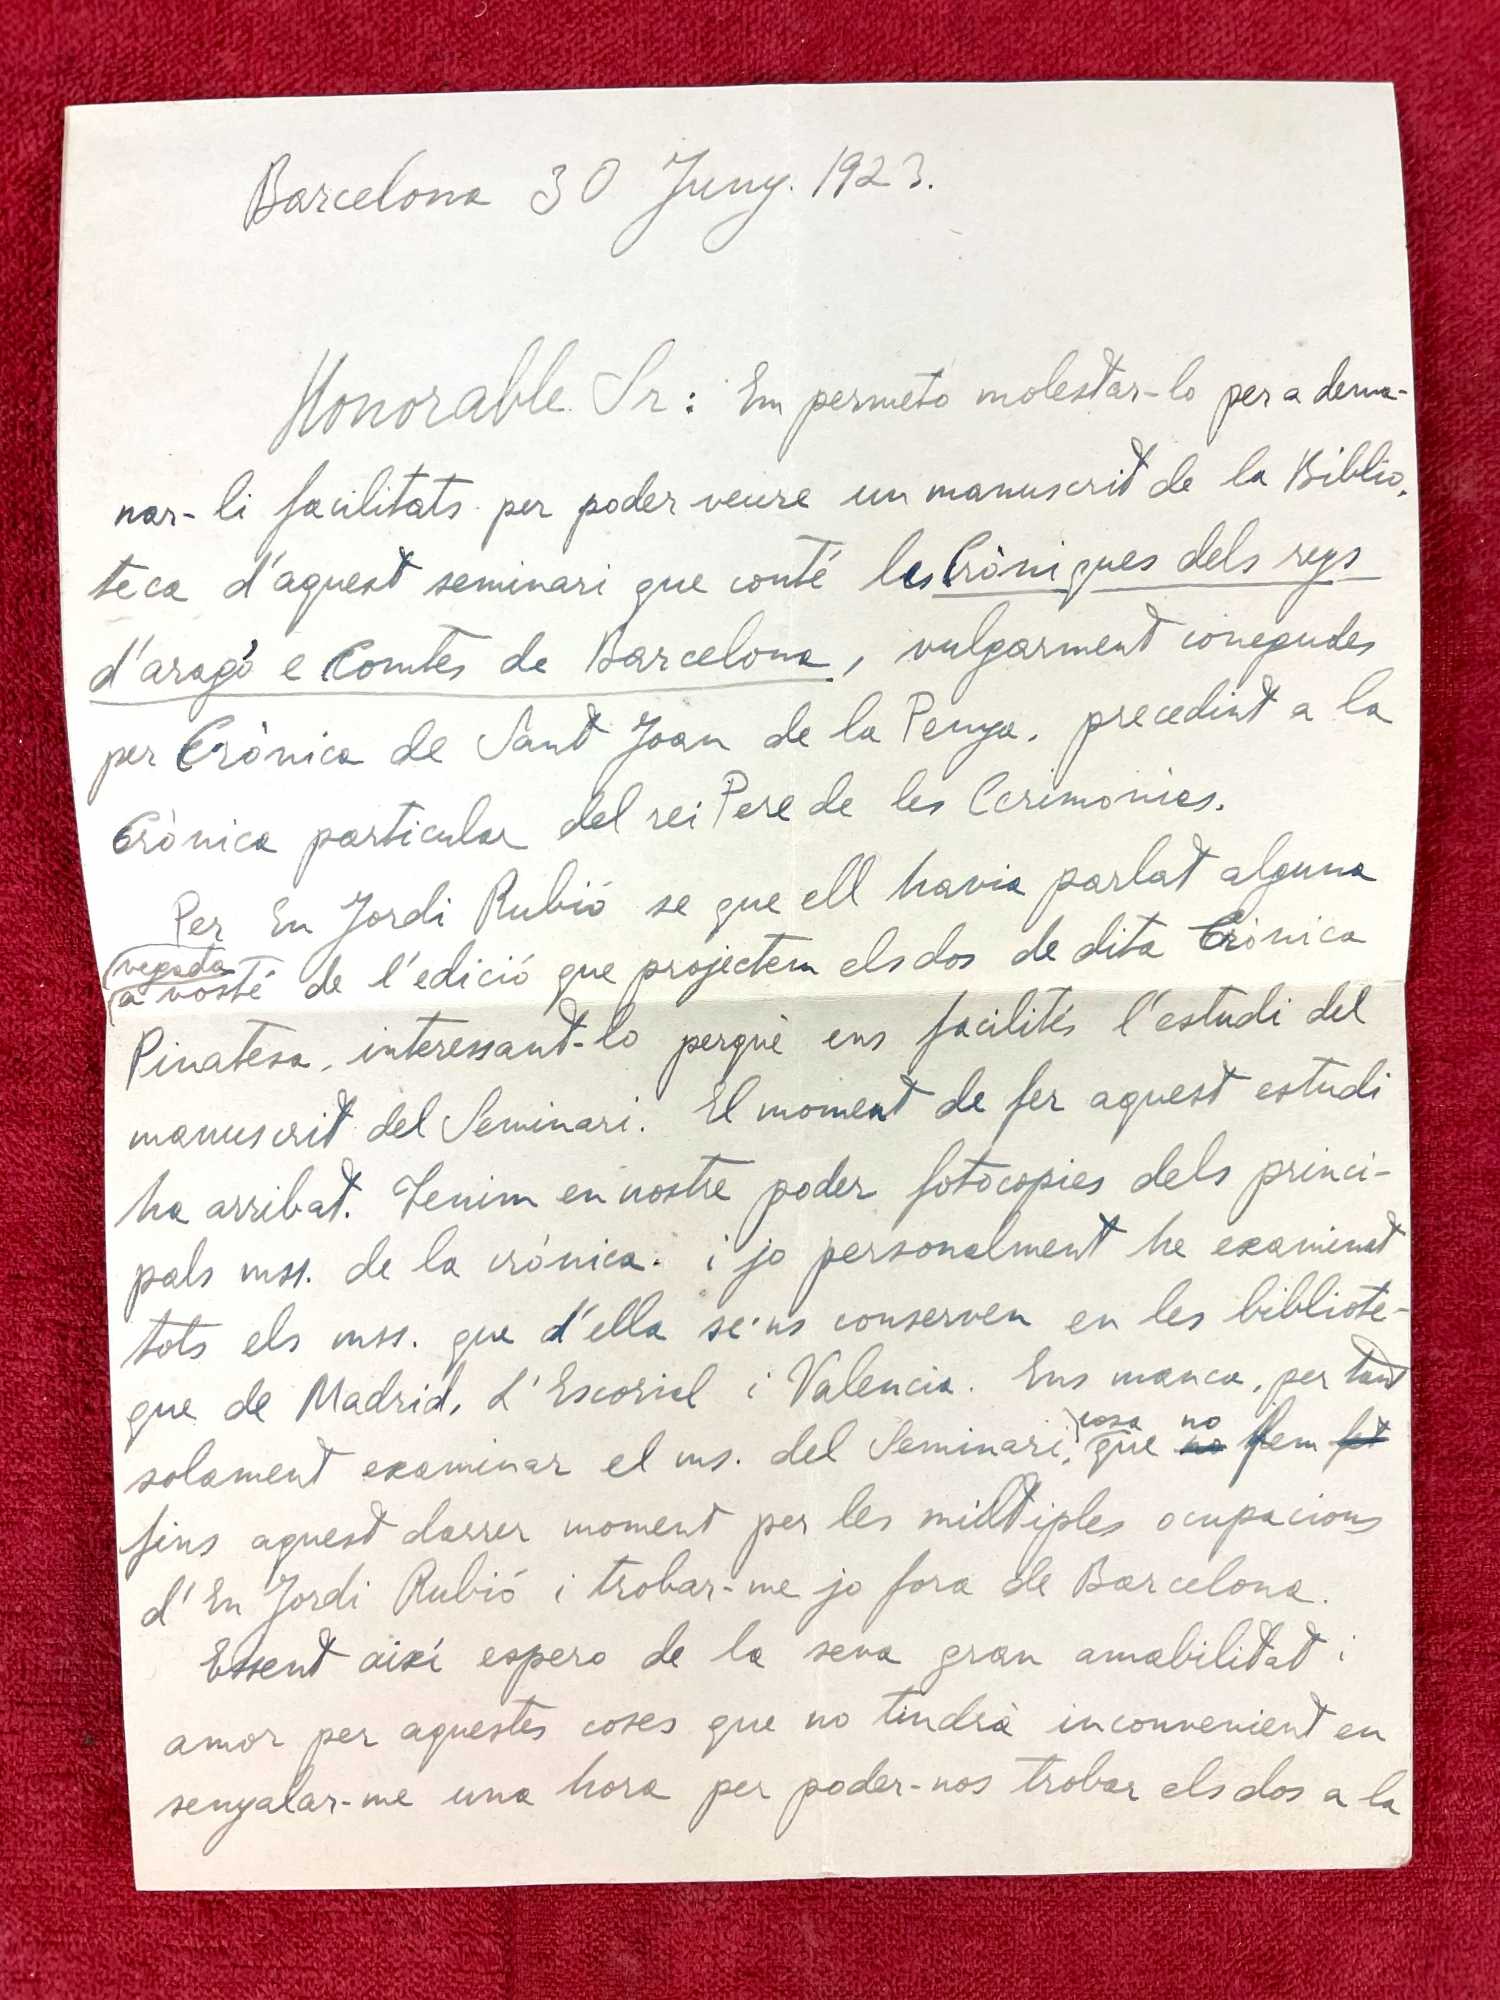 Barcelona 30 Juny. 1923.
Honorable Sr: Em permeto molestar-lo per a dema-
nar-li facilitats per poder veure un manuscrit de la Biblio-
teca d'aquest seminari que conté les Cròniques dels reys
d'aragó e Comtes de Barcelona, vulgarment conegudes
per Crònica de Sant Joan de la Penya, precedint a la
Crònica particular del rei Pere de les Cerimonies.
Per En Jordi Rubió se que ell havia parlat alguna
vegada
a vosté de l'edició que projectem els dos de dita Crònica
Pinatesa, interessant-lo perquè ens facilités l'estudi del
manuscrit del Seminari. El moment de fer aquest estudi
ha arribat. Tenim en nostre poder fotocopies dels princi-
pals mss. de la crònica. i jo personalment he examinat
tots els mss. que d'ella se'ns conserven en les bibliote-
que de Madrid, L'Escorial i Valencia. Ens manca, per tant
solament examinar el ms. del Seminari, cosa que no fem
fins aquest darrer moment per les múltiples ocupacions
d'En Jordi Rubió i trobar-me jo fora de Barcelona.
Essent així espero de la seva gran amabilitat i
amor per aquestes coses que no tindrà inconvenient en
senyalar-me una hora per poder-nos trobar els dos a la